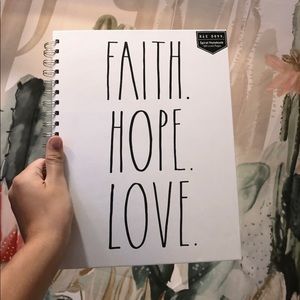 FAITH.
HOPE.
LOVE.
RAE DUNN.
Spiral Notebook